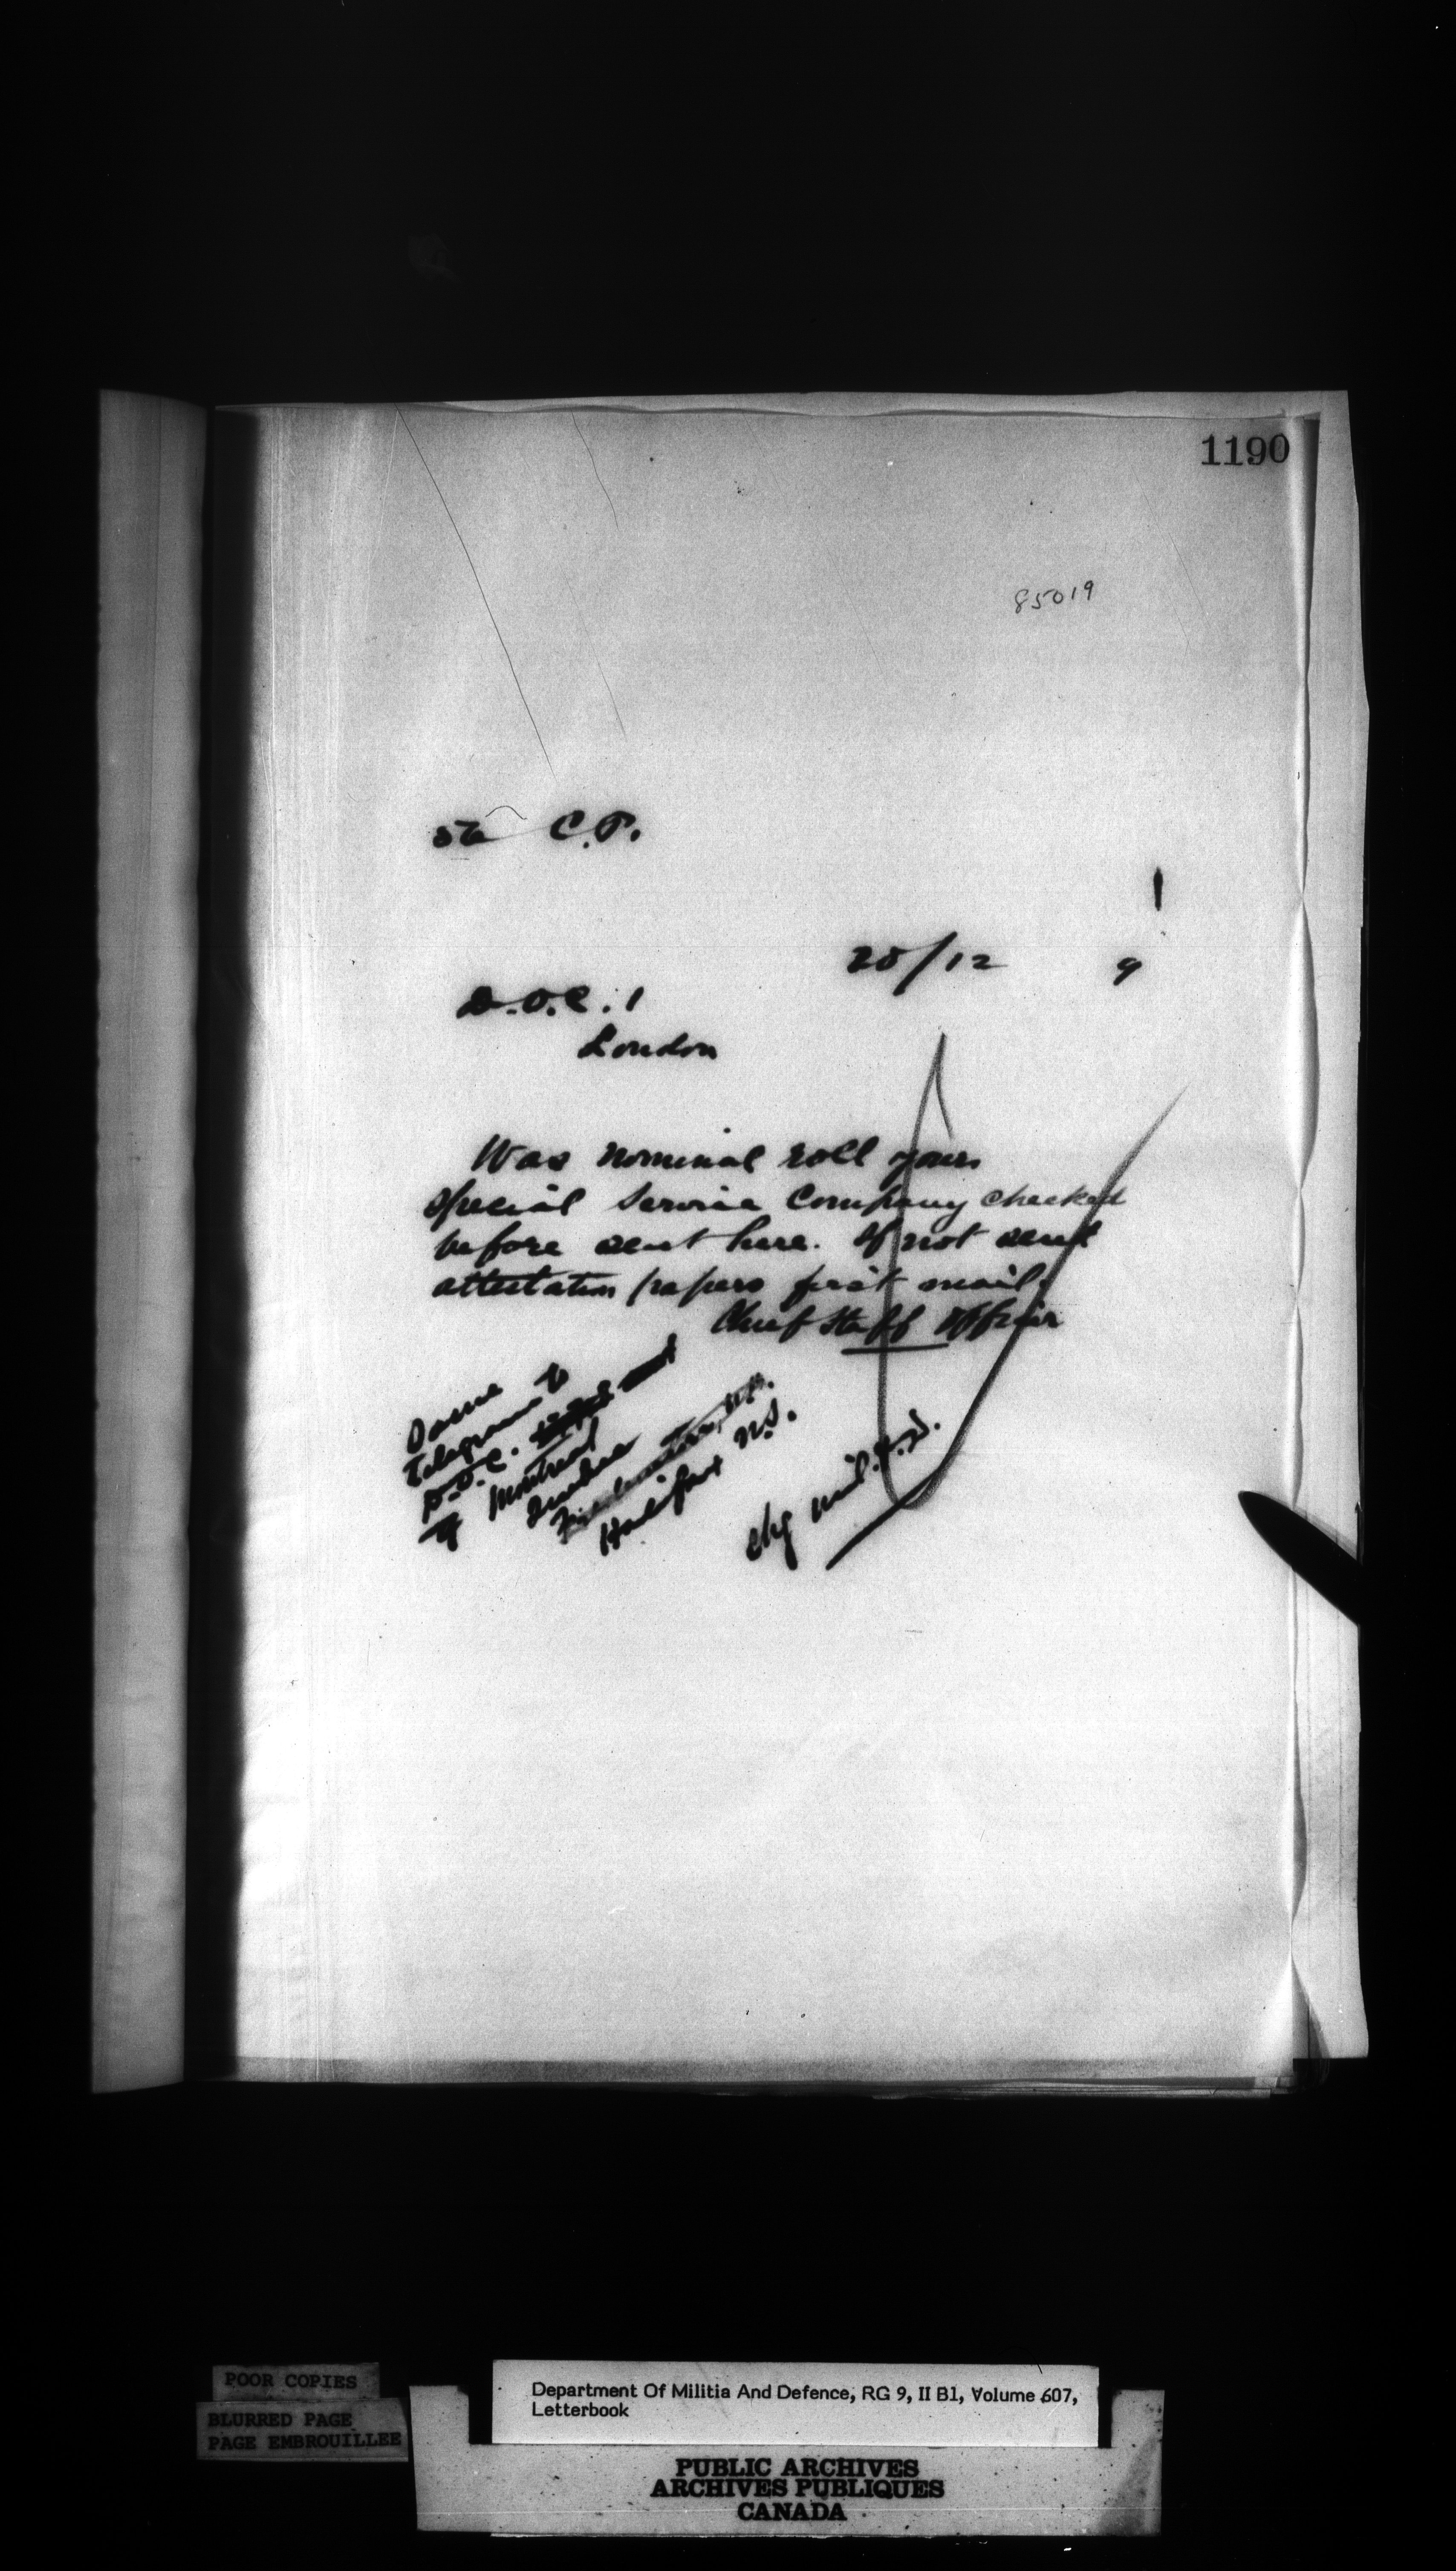 1190
85019
C.P.
1
20/12 9
D.O.C. 1
London
Was nominal roll yours
special service company checked
before sent here. If not send
attestation papers first mail.
Chief Staff Officer
Same
telegram to
D.O.C.
of Montreal
Quebec
Fredericton, N.B.
Halifax N.S.
chg mil.
POOR COPIES
BLURRED PAGE
PAGE EMBROUILLEE
Department Of Militia And Defence, RG 9, II B1, Volume 607,
Letterbook
PUBLIC ARCHIVES
ARCHIVES PUBLIQUES
CANADA